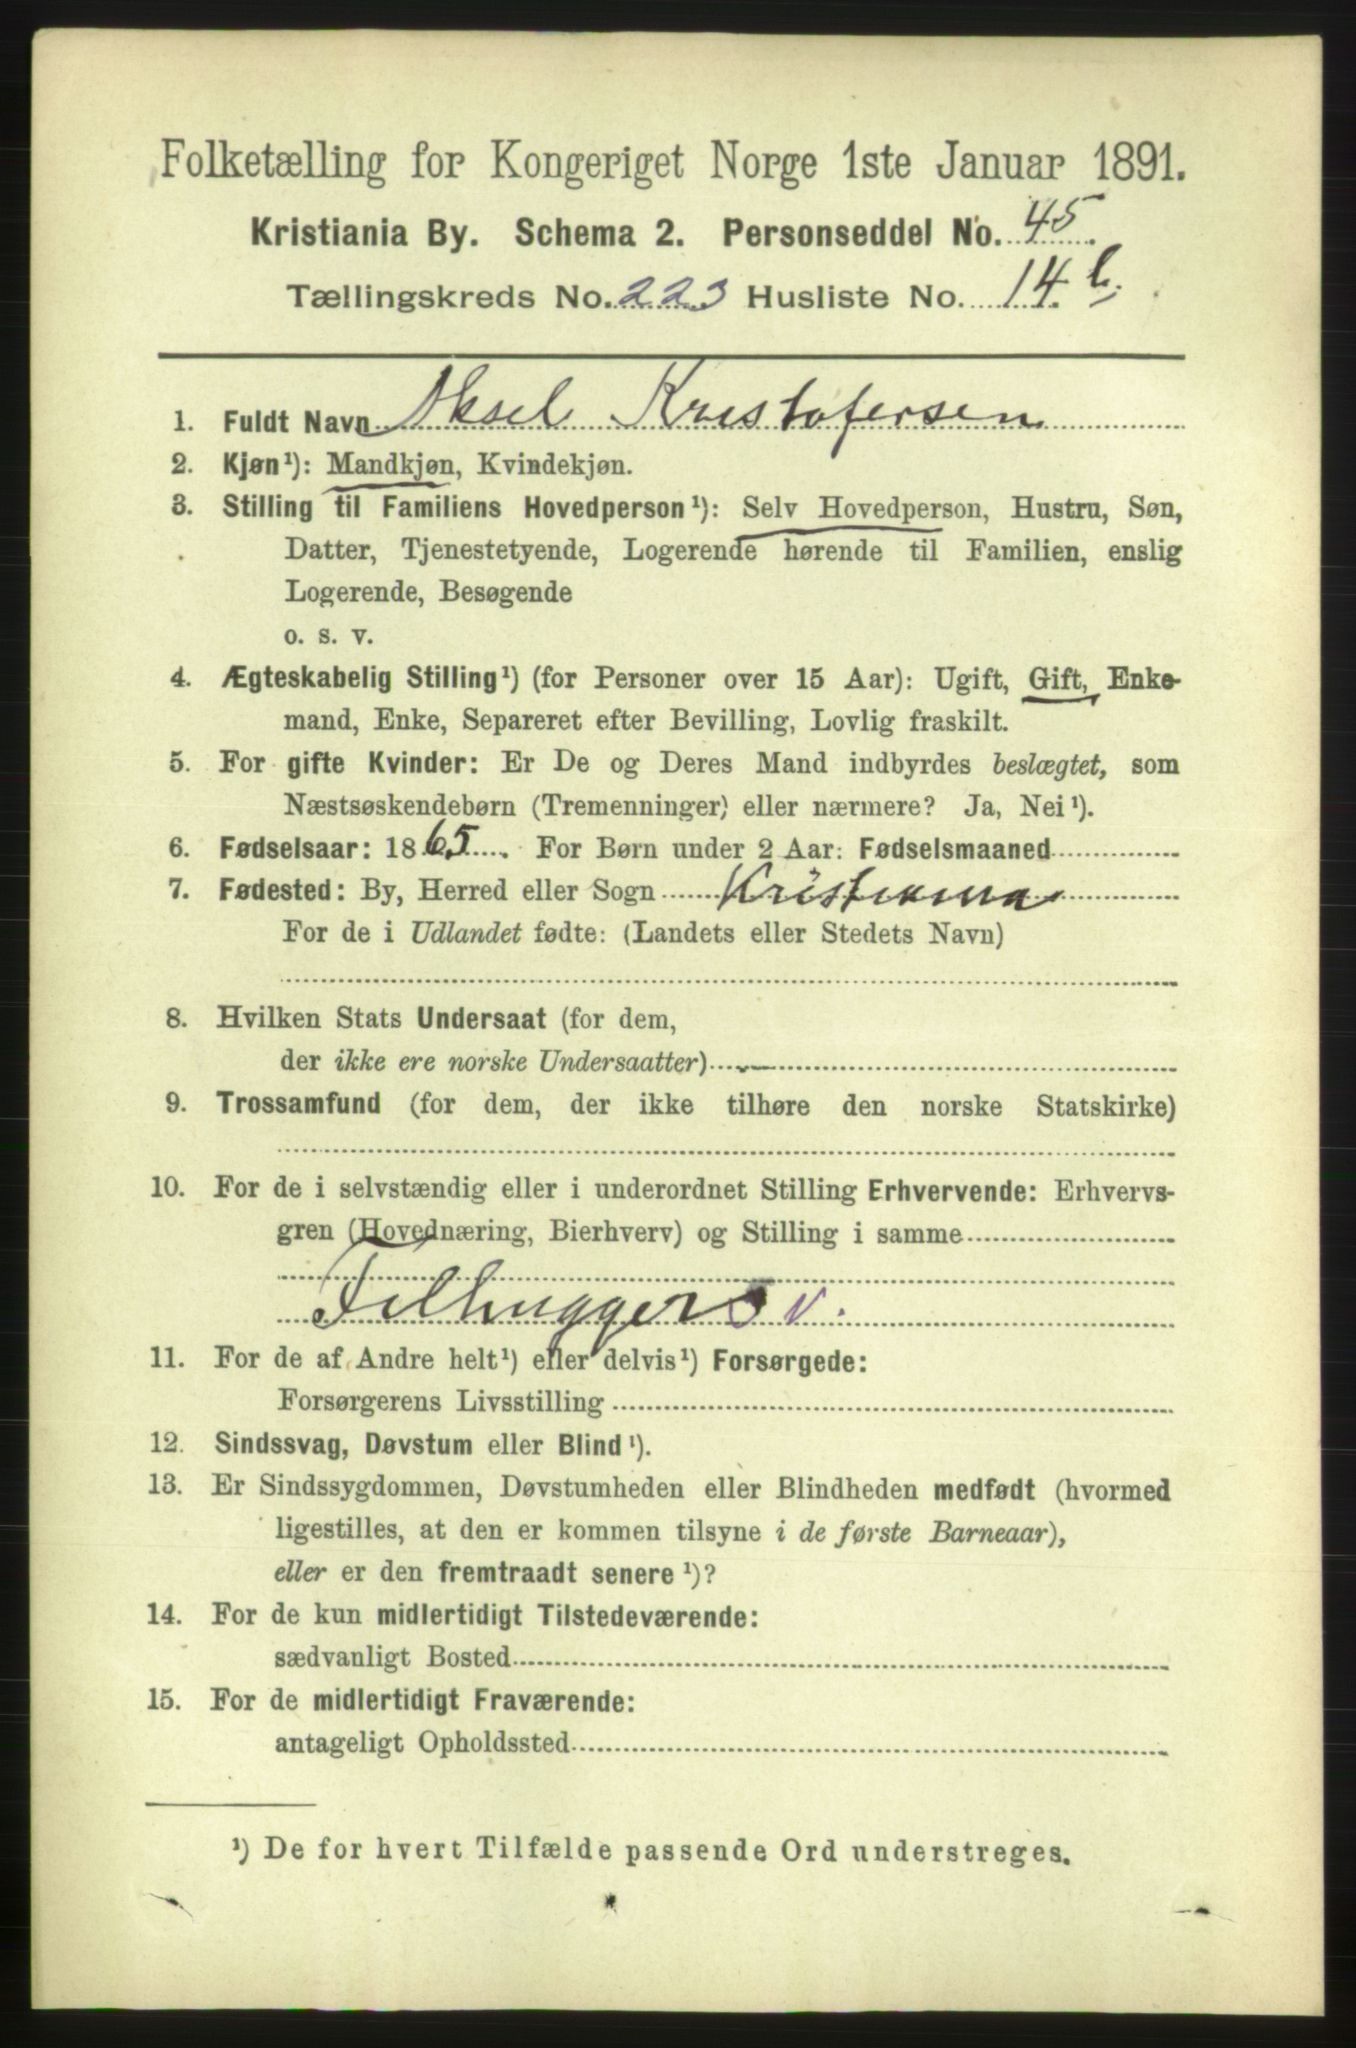 Folketælling for Kongeriget Norge 1ste Januar 1891.
Kristiania By. Schema 2. Personseddel No. 45
Tællingskreds No. 223 Husliste No. 14 b.
1. Fuldt Navn Aksel Kristofersen
2. Kjøn¹): Mandkjøn, Kvindekjøn.
3. Stilling til Familiens Hovedperson¹): Selv Hovedperson, Hustru, Søn,
Datter, Tjenestetyende, Logerende hørende til Familien, enslig
Logerende, Besøgende
o. s. v.
4. Ægteskabelig Stilling¹) (for Personer over 15 Aar): Ugift, Gift, Enke-
mand, Enke, Separeret efter Bevilling, Lovlig fraskilt.
5. For gifte Kvinder: Er De og Deres Mand indbyrdes beslægtet, som
Næstsøskendebørn (Tremenninger) eller nærmere? Ja, Nei¹).
6. Fødselsaar: 1865. For Børn under 2 Aar: Fødselsmaaned
7. Fødested: By, Herred eller Sogn Kristiania
For de i Udlandet fødte: (Landets eller Stedets Navn)
8. Hvilken Stats Undersaat (for dem,
der ikke ere norske Undersaatter)
9. Trossamfund (for dem, der ikke tilhøre den norske Statskirke)
10. For de i selvstændig eller i underordnet Stilling Erhvervende: Erhvervs-
gren (Hovednæring, Bierhverv) og Stilling i samme
Filhuggersv.
11. For de af Andre helt¹) eller delvis¹) Forsørgede:
Forsørgerens Livsstilling
12. Sindssvag, Døvstum eller Blind¹).
13. Er Sindssygdommen, Døvstumheden eller Blindheden medfødt (hvormed
ligestilles, at den er kommen tilsyne i de første Barneaar),
eller er den fremtraadt senere¹)?
14. For de kun midlertidigt Tilstedeværende:
sædvanligt Bosted
15. For de midlertidigt Fraværende:
antageligt Opholdssted
¹) De for hvert Tilfælde passende Ord understreges.